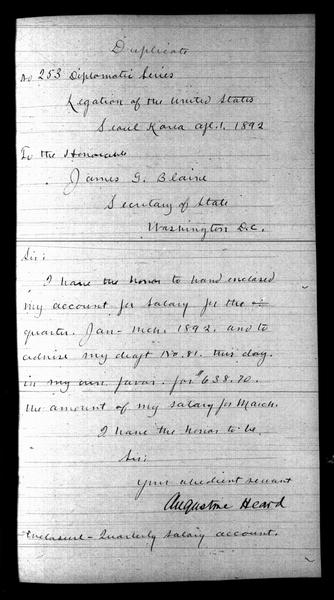 Duplicate
No 253 Diplomatic Series
Legation of the United States
Seoul Korea Apl. 1. 1892
To the Honorable
James G. Blaine
Secretary of State
Washington D.C.
Sir:
I have the honor to hand enclosed
my account for salary for the
quarter. Jan - Mch. 1892. and to
advise my draft No. 81. this day.
in my own favor. for $638.70.
the amount of my salary for March.
I have the honor to be
Sir:
your obedient servant
Augustine Heard
Enclosure - Quarterly salary account.